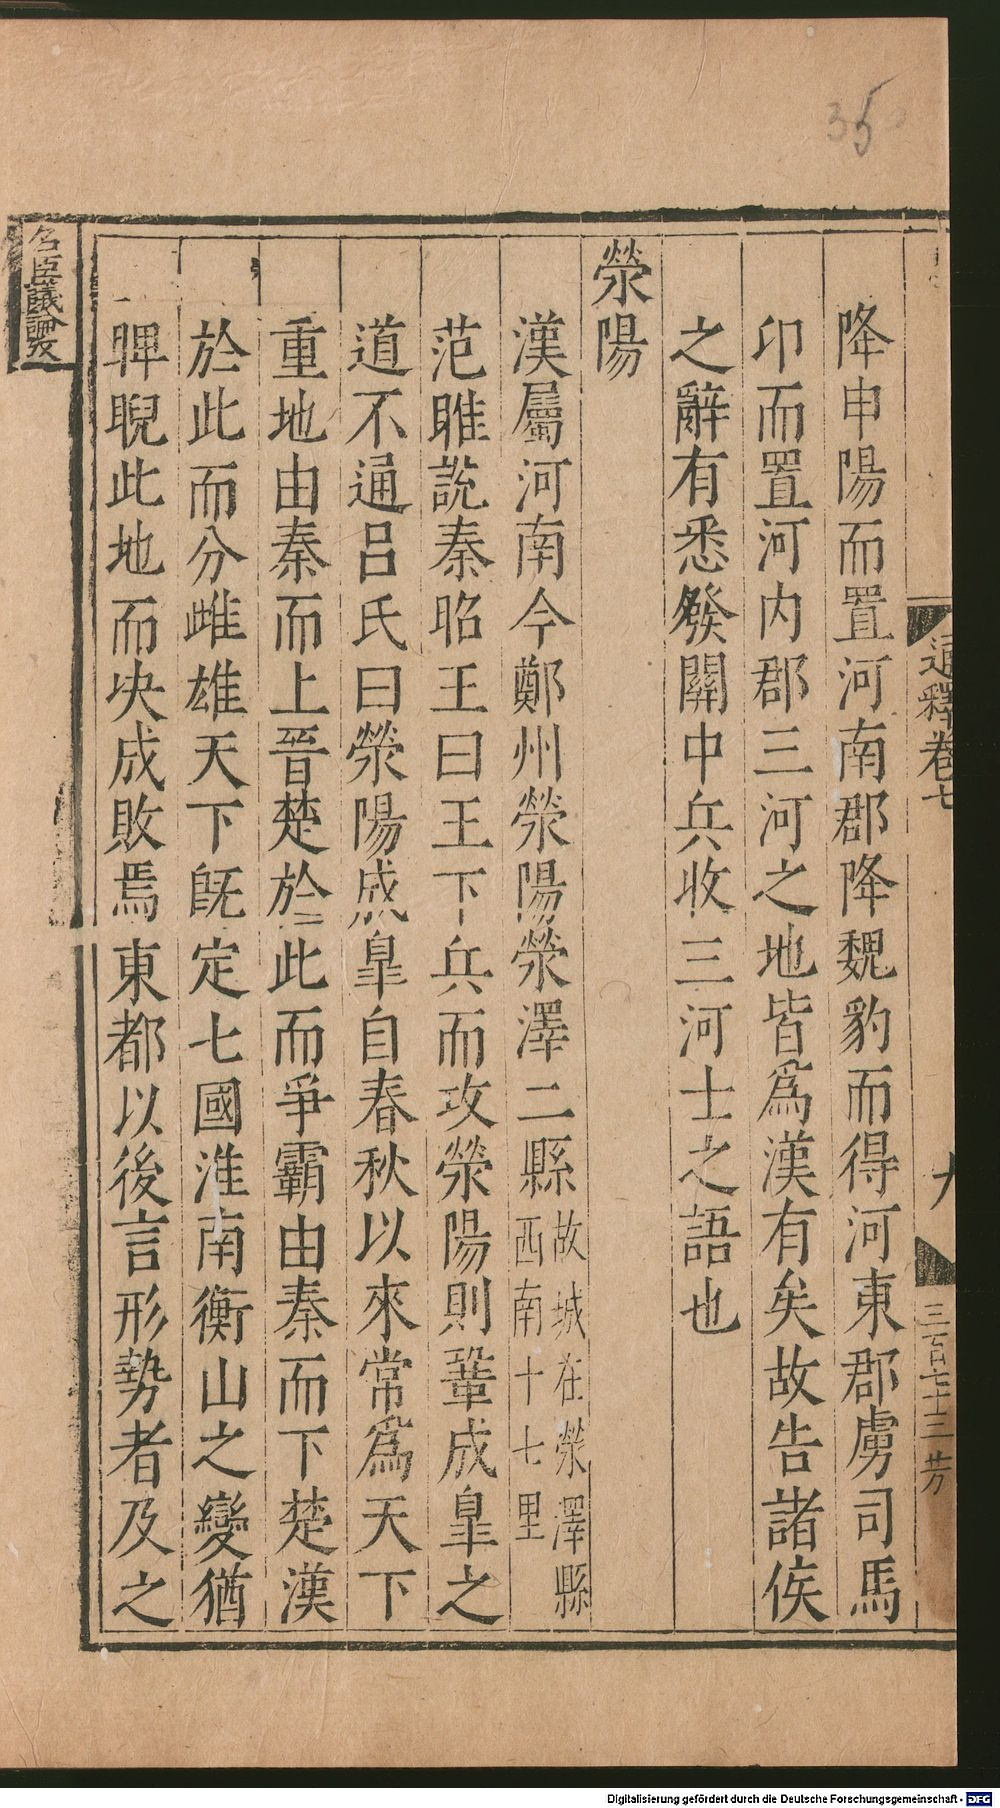 35
通釋卷七
九
三百七十三 芳
降申陽而置河南郡降魏豹而得河東郡虜司馬
卬而置河内郡三河之地皆爲漢有矣故告諸侯
之辭有悉發關中兵收三河士之語也
滎陽
漢屬河南今鄭州滎陽滎澤二縣故城在滎澤縣西南十七里
范雎説秦昭王曰王下兵而攻滎陽則鞏成臯之
道不通呂氏曰滎陽成臯自春秋以來常爲天下
重地由秦而上晉楚於此而爭霸由秦而下楚漢
於此而分雌雄天下旣定七國淮南衡山之變猶
睥睨此地而决成敗焉東都以後言形勢者及之
名臣議論
Digitalisierung gefördert durch die Deutsche Forschungsgemeinschaft - DFG